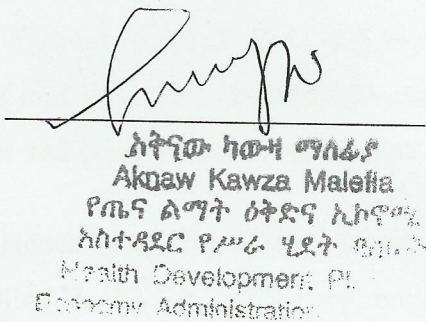 አቅናው ካውዛ ማለፊያ
Aknaw Kawza Malefia
የጤና ልማት ዕቅድና ኢኮኖሚ
አስተዳደር የሥራ ሂደት
Health Development Pl
Economy Administration